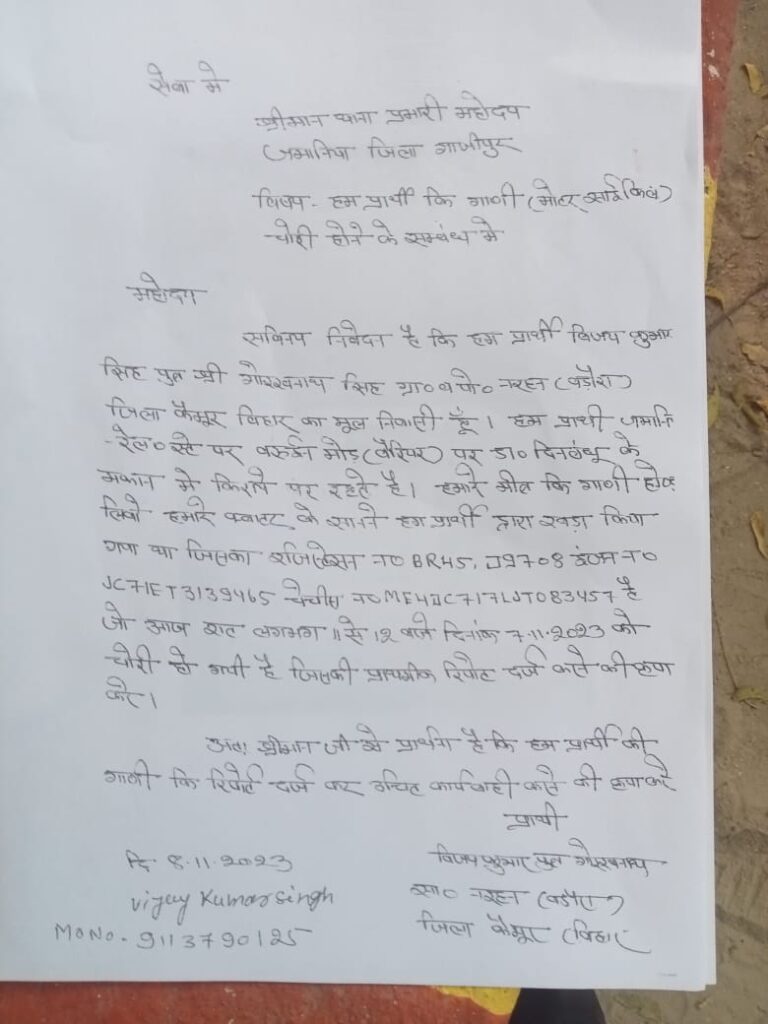 सेवा मे
श्रीमान थाना प्रभारी महोदय
जमानिया जिला गाजीपुर
विषय - हम प्रार्थी कि गाणी (मोटर साईकिल)
चोरी होने के सम्बंध मे
महोदय
सविनय निवेदन है कि हम प्रार्थी विजय कुमार
सिंह पुत्र श्री गोरखनाथ सिंह ग्रा० व पो० नरहन (बड़ौरा)
जिला कैमूर विहार का मूल निवासी हूँ। हम प्रार्थी जमानि
रेल० स्टे पर वरुईन मोड (बैरियर) पर डा० दिनबंधू के
मकान मे किराये पर रहते है। हमारे कि गाणी
लिवो हमारे के सामने हम प्रार्थी द्वारा खड़ा किया
गया था जिसका रजिस्ट्रेसन नO BR45, J9708 इंजन नO
JC71ET3139465 चेचीस नO ME4JC717LJT083457 है
जो आज रात लगभग 11 से 12 बजे दिनांक 7.11.2023 को
चोरी हो गयी है जिसकी रिपोट दर्ज करने की कृपा
करे।
अतः श्रीमान जी से प्रार्थना है कि हम प्रार्थी की
गाणी कि रिपोर्ट दर्ज कर उचित कार्यवाही करने की कृपा करे
प्रार्थी
विजय कुमार पुत्र गोरखनाथ
सा० नरहन (बड़ौरा)
जिला कैमूर (विहार
दि 8.11.2023
Vijay Kumar Singh
MO NO - 9113790125